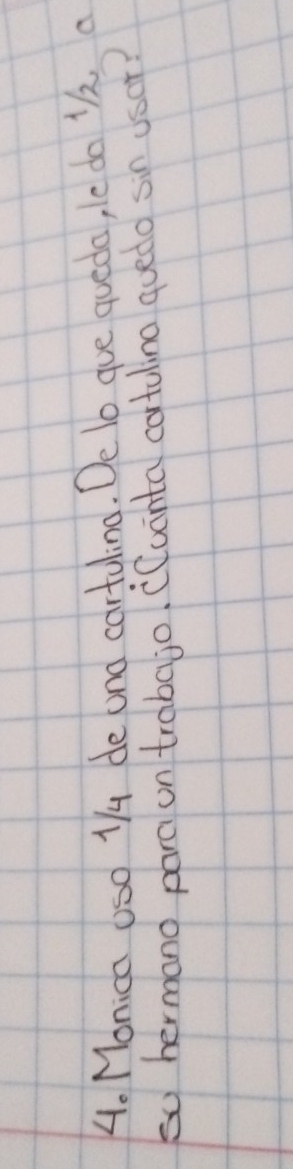 4. Monica uso 1/4 de una cartulina. De lo que queda, le da 1/2 a
su hermano para un trabajo. ¿Cuánta cartulina quedo sin usar?